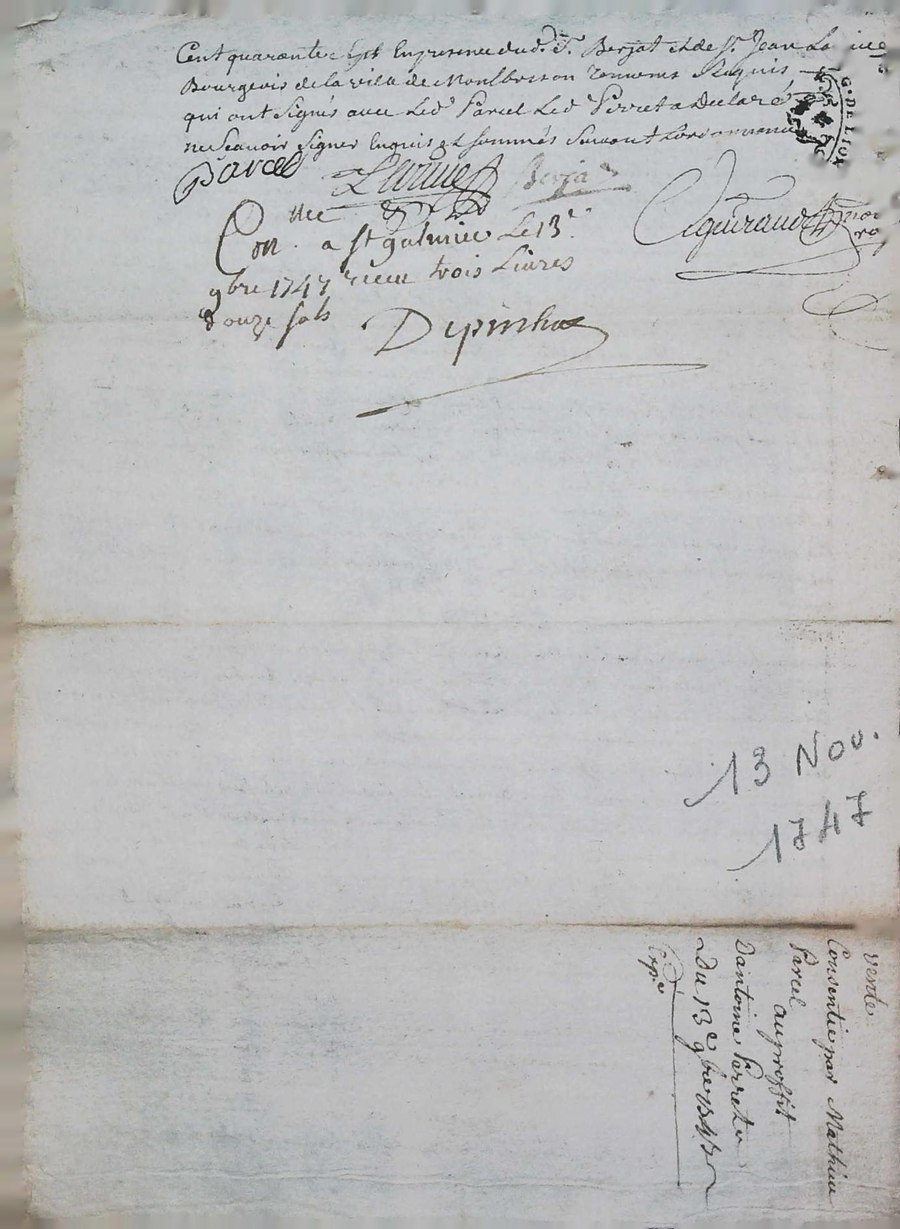 Cent quarante Sept En presence dud. Sr. Berjat et de Sr. Jean La
Bourgeois de la ville de Montbrison temoins Requis
qui ont Signés avec Led. Parcel Led. Perret a Declaré
ne Scavoir Signer Enquis et Sommés Suivant L'ordonnance
G. DE LION
Parcel
Berja
Con. a St galmier Le 13e
9bre 1747 receu trois Livres
douze sols
13 Nov.
1747
vente
Consentie par Mathieu
Parcel
au proffit
Dantoine Perret
Du 13e 9bre 1747
Expe